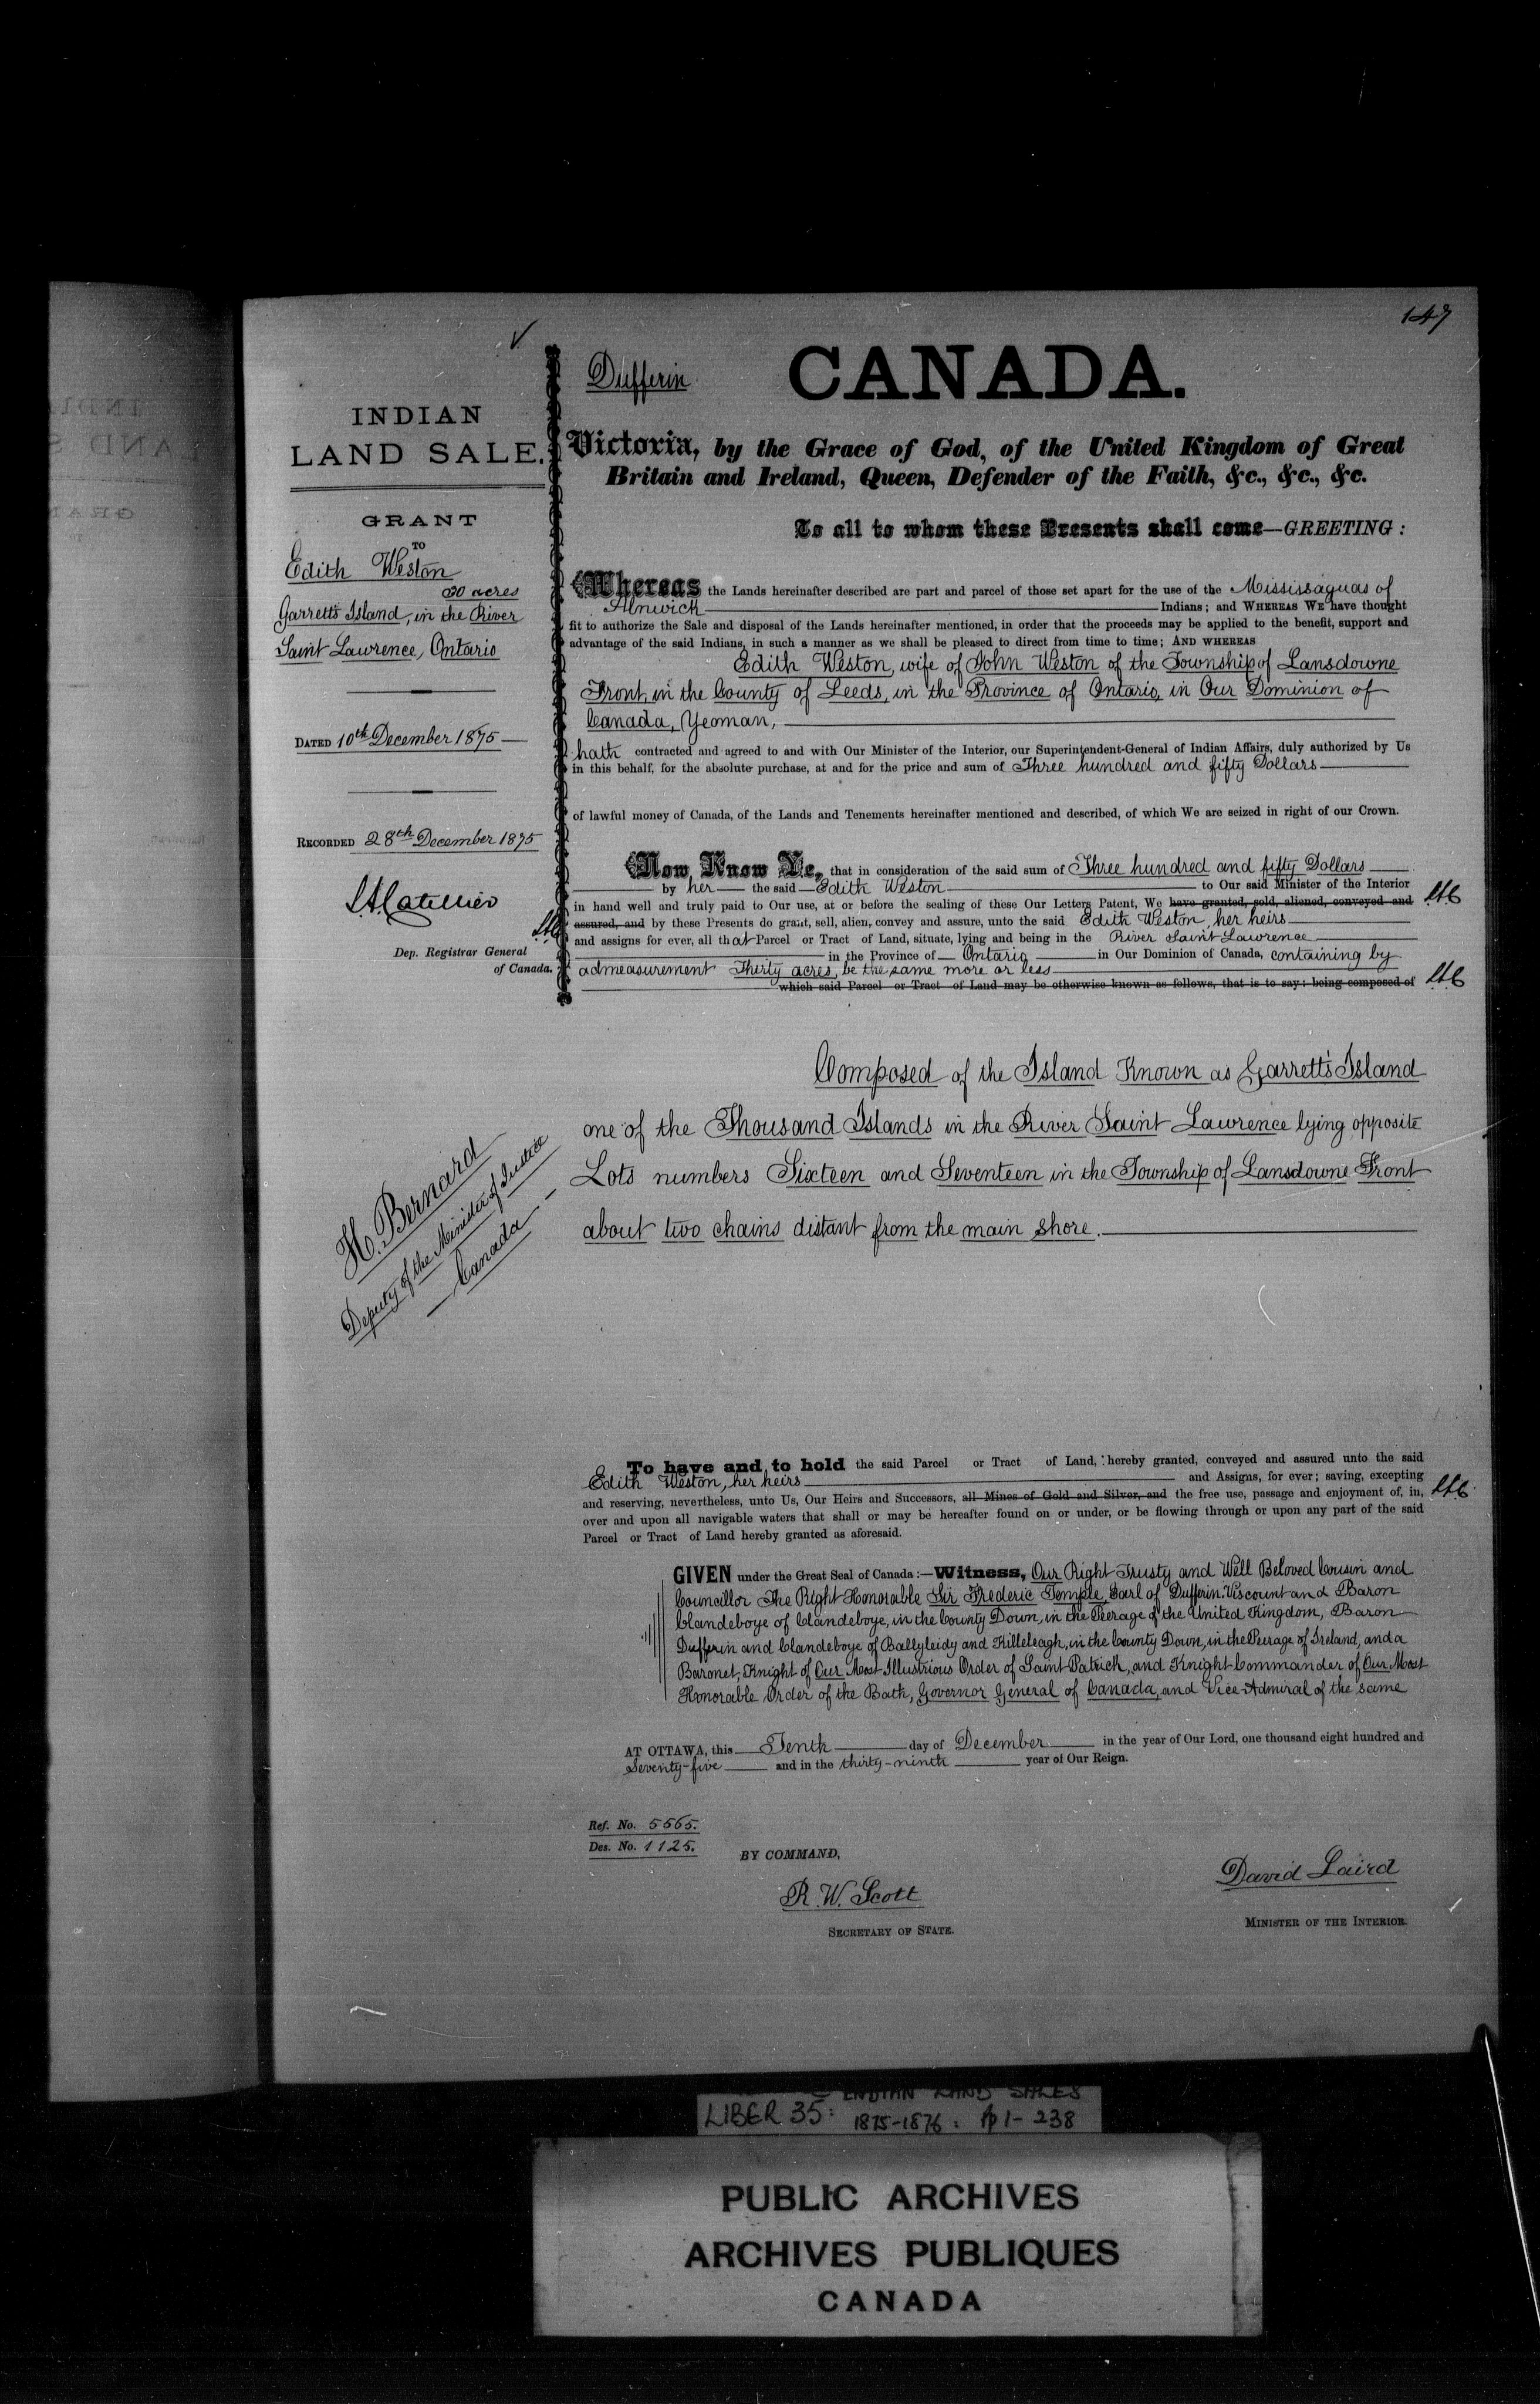 147
Dufferin
CANADA.
INDIAN
LAND SALE.
GRANT
TO
Edith Weston
30 acres
Garrett's Island, in the River
Saint Lawrence, Ontario
DATED 10th December 1875
RECORDED 28th December 1875
Dep. Registrar General
of Canada.
H. Bernard
Deputy of the Minister of Justice
Canada
Victoria, by the Grace of God, of the United Kingdom of Great
Britain and Ireland, Queen, Defender of the Faith, &c., &c., &c.
To all to whom these Presents shall come—GREETING:
Whereas the Lands hereinafter described are part and parcel of those set apart for the use of the Mississaguas of
Alnwick Indians; and WHEREAS WE have thought
fit to authorize the Sale and disposal of the Lands hereinafter mentioned, in order that the proceeds may be applied to the benefit, support and
advantage of the said Indians, in such a manner as we shall be pleased to direct from time to time; AND WHEREAS
Edith Weston, wife of John Weston of the Township of Lansdowne
Front, in the County of Leeds, in the Province of Ontario, in Our Dominion of
Canada, Yeoman,
hath contracted and agreed to and with Our Minister of the Interior, our Superintendent-General of Indian Affairs, duly authorized by Us
in this behalf, for the absolute purchase, at and for the price and sum of Three hundred and fifty Dollars
of lawful money of Canada, of the Lands and Tenements hereinafter mentioned and described, of which We are seized in right of our Crown.
Now Know Ye, that in consideration of the said sum of Three hundred and fifty Dollars
by her the said Edith Weston to Our said Minister of the Interior
in hand well and truly paid to Our use, at or before the sealing of these Our Letters Patent, We have granted, sold, aliened, conveyed and
assured, and by these Presents do grant, sell, alien, convey and assure, unto the said Edith Weston, her heirs
and assigns for ever, all that Parcel or Tract of Land, situate, lying and being in the River Saint Lawrence
in the Province of Ontario in Our Dominion of Canada, containing by
admeasurement Thirty acres, be the same more or less
which said Parcel or Tract of Land may be otherwise known as follows, that is to say: being composed of
Composed of the Island Known as Garrett's Island
one of the Thousand Islands in the River Saint Lawrence lying opposite
Lots numbers Sixteen and Seventeen in the Township of Lansdowne Front
about two chains distant from the main shore.
To have and to hold the said Parcel or Tract of Land, hereby granted, conveyed and assured unto the said
Edith Weston, her heirs and Assigns, for ever; saving, excepting
and reserving, nevertheless, unto Us, Our Heirs and Successors, all Mines of Gold and Silver, and the free use, passage and enjoyment of, in,
over and upon all navigable waters that shall or may be hereafter found on or under, or be flowing through or upon any part of the said
Parcel or Tract of Land hereby granted as aforesaid.
GIVEN under the Great Seal of Canada:—Witness, Our Right Trusty and Well Beloved Cousin and
Councillor The Right Honorable Sir Frederic Temple, Earl of Dufferin. Viscount and Baron
Clandeboye of Clandeboye, in the County Down, in the Peerage of the United Kingdom, Baron
Dufferin and Clandeboye of Ballyleidy and Killeleagh, in the County Down, in the Peerage of Ireland, and a
Baronet, Knight of Our Most Illustrious Order of Saint Patrick, and Knight Commander of Our Most
Honorable Order of the Bath, Governor General of Canada, and Vice-Admiral of the same
AT OTTAWA, this Tenth day of December in the year of Our Lord, one thousand eight hundred and
Seventy-five and in the thirty-ninth year of Our Reign.
Ref. No. 5565.
Des. No. 1125.
BY COMMAND,
R. W. Scott
SECRETARY OF STATE.
David Laird
MINISTER OF THE INTERIOR.
INDIAN LAND SALES
LIBER 35: 1875-1876: pp 1-238
PUBLIC ARCHIVES
ARCHIVES PUBLIQUES
CANADA